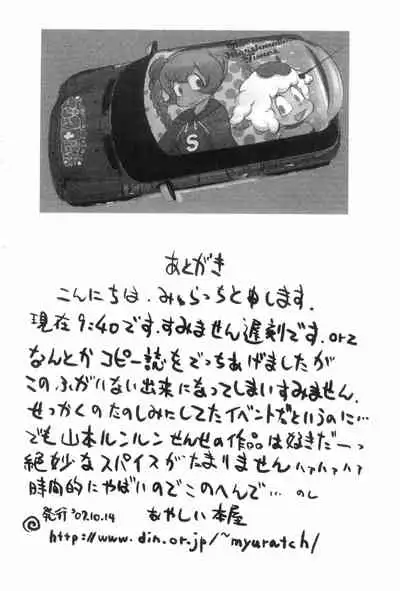 S
あとがき
こんにちは、みゅらっちと申します。
現在9:40です。すみません遅刻です。orz
なんとか コピー誌をでっちあげましたが
このふがいない出来になってしまいすみません。
せっかくのたのしみにしてたイベントだというのに…
でも山本ルンルンせんせの作品は好きだーっ
絶妙なスパイスがたまりません ハァハァハァ
時間的にやばいのでこのへんで…
発行 '07.10.14 もやしい本屋
http://www.din.or.jp/~myuratch/